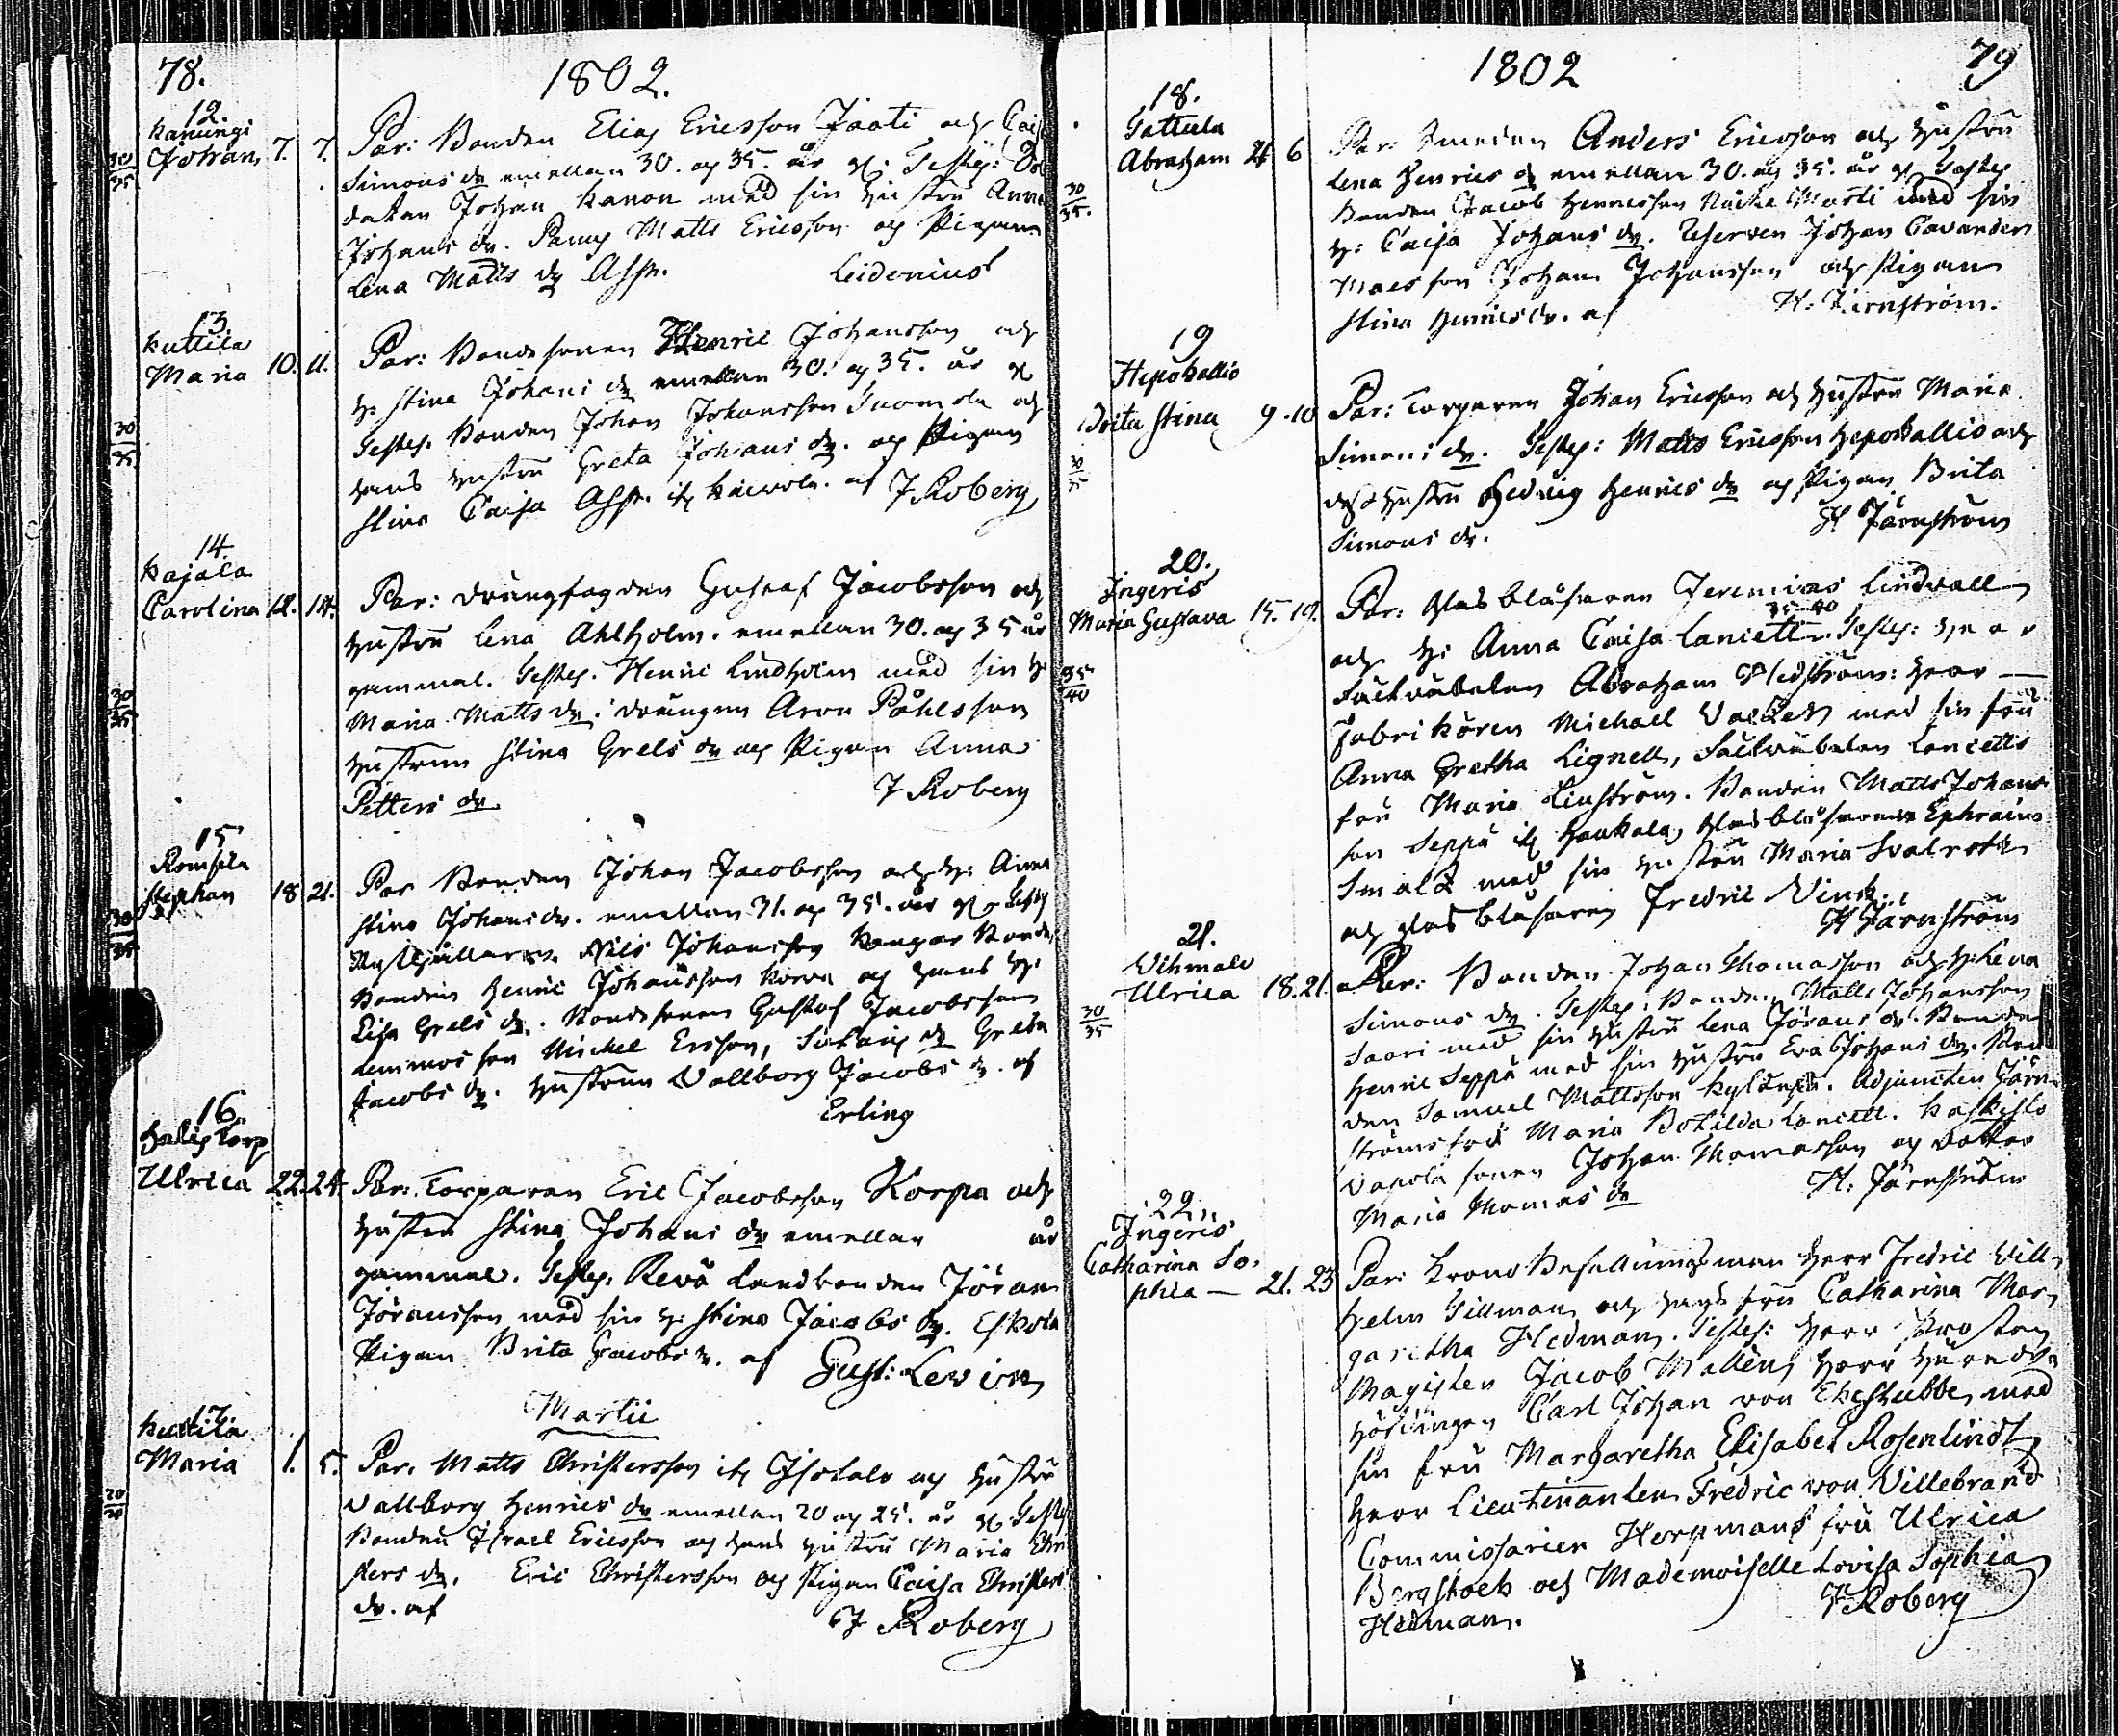 78.
1802.
12.
Kanungi
Johan 7. 7.
30
35
Par: Bonden Elias Ericsson Jaati och Caisa
Simons dr emellan 30. og 35. år gl. Testes: Sol
daten Johan Kanon med sin hustru Anna
Johans dr. Matts Ericsson og Pigan
Lena Matts dr Ass.
Leidenius
13.
Kuttila
Maria 10. 11.
30
35
Par: Bondesonen Henric Johansson och
h: Stina Johans dr emellan 30. og 35. år gl
Testes. Bonden Johan Johansson Suomela och
hans hustru Greta Johans dr. og Pigan
Stina Caisa af J Roberg
14.
Kajala
Carolina 12. 14.
30
35
Par: drängfogden Gustaf Jacobsson och
hustru Lena Ahlholm. emellan 30. og 35 år
gammal. Testes. Henric Lindholm med sin h:
Maria Matts dr. drängen Aron Påhlsson
hustrun Stina Grels dr och Pigan Anna
Petters dr
J Roberg
15
Romsila
Stephan 18 21.
30
35
Par Bonden Johan Jacobsson och h: Anna
Stina Johans dr. emellan 31. og 35. år gl Testes
Nils Johansson Kangar
Bonden Henric Johansson Korva og hans h:
Lisa Grels dr. Bondesonen Gustaf Jacobsson
Michel Ersson, dr Greta
Jacobs dr. hustrun Vallborg Jacobs dr. af
Erling
16.
Salis torp
Ulrica 22. 24.
Par: Torparen Eric Jacobsson Korpa och
hustru Stina Johans dr emellan år
gammal. Testes: Revä Landbonden Jöran
Jöransson med sin h: Stina Jacobs dr. Eskola
Pigan Brita Jacobs dr. af Gust: Levin
Martii
17
Kuttila
Maria 1. 5.
20
Par. Matts Christersson ifr Isotalo og hustru
Vallborg Henrics dr emellan 20 og 25. år gl Testes
Bonden Israel Ericsson og hans hustru Maria Chri
sters dr. Eric Christersson og Pigan Caisa Christers
dr. af
J Roberg
1802
79
18.
Gattula
Abraham 4 6
30
35.
Par: Smeden Anders Ericsson och hustru
Lena Henrics dr emellan 30. og 35. år gl Testes
Bonden Jacob Henricsson Marti med sin
h: Caisa Johans dr. Johan Cavander
Johan Johansson och Pigan
Stina Henrics dr. af
H. Järnström.
19
Hepokallio
Brita Stina 9 - 10
Par: Torparen Johan Ericsson och hustru Maria
Simons dr. Testes: Matts Ericsson Hepokallio och
dess hustru Hedvig Henrics dr og Pigan Brita
Simons dr.
H Järnström
20.
Jngeris
Maria Gustava 15. 19.
35
40
Par: Glasblåsaren Jeremias Lindvall
och h: Anna Caisa Lancett. 35-40 Testes: Herr
Fältväbelen Abraham Hedström: Herr —
Fabrikören Michael Vacker med sin fru
Anna Gretha Lignell, Fältväbelen Lancetts
fru Maria Linström. Bonden Matts Johans
son Seppä ifr Haukala, Glasblåsaren Ephraim
Smalz med sin hustru Maria Svalrot
og glasblåsaren Fredric Vinck.
H Järnström
21.
Vihmalo
Ulrica 18. 21.
30
35
Par: Bonden Johan Thomasson och h: Lena
Simons dr. Testes: Bonden Matts Johansson
Saari med sin hustru Lena Jörans dr. Bonden
Henric Seppä med sin hustru Eva Johans dr. Bon
den Samuel Mattsson. Adjuncten Järn
ströms fru Maria Botilda Lancett. Kaskisto
sonen Johan Thomasson og dotter
Maria Thomas dr
H: Järnström
22.
Jngeris
Catharina So-
phia — 21. 23
Par: Krono Befallningsman Herr Fredric Vill-
helm Gillman och hans fru Catharina Mar-
garetha Hedman. Testes: Herr Prosten
Magister Jacob Mallén, Herr Härads
höfdingen Carl Johan von Ehestubbe, med
sin fru Margaretha Elisabet Rosenlindt
Herr Lieutenanten Fredric von Villebrand
Commissarien Horpmans fru Ulrica
Bergstock och Mademoiselle Lovisa Sophia
Hedman.
J Roberg